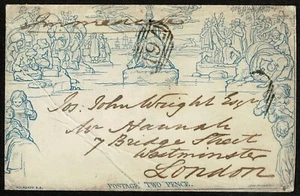 Immediate
Jno. John Wright Esqr
Mr Hannah
7 Bridge Street
Westminster
London
POSTAGE TWO PENCE.